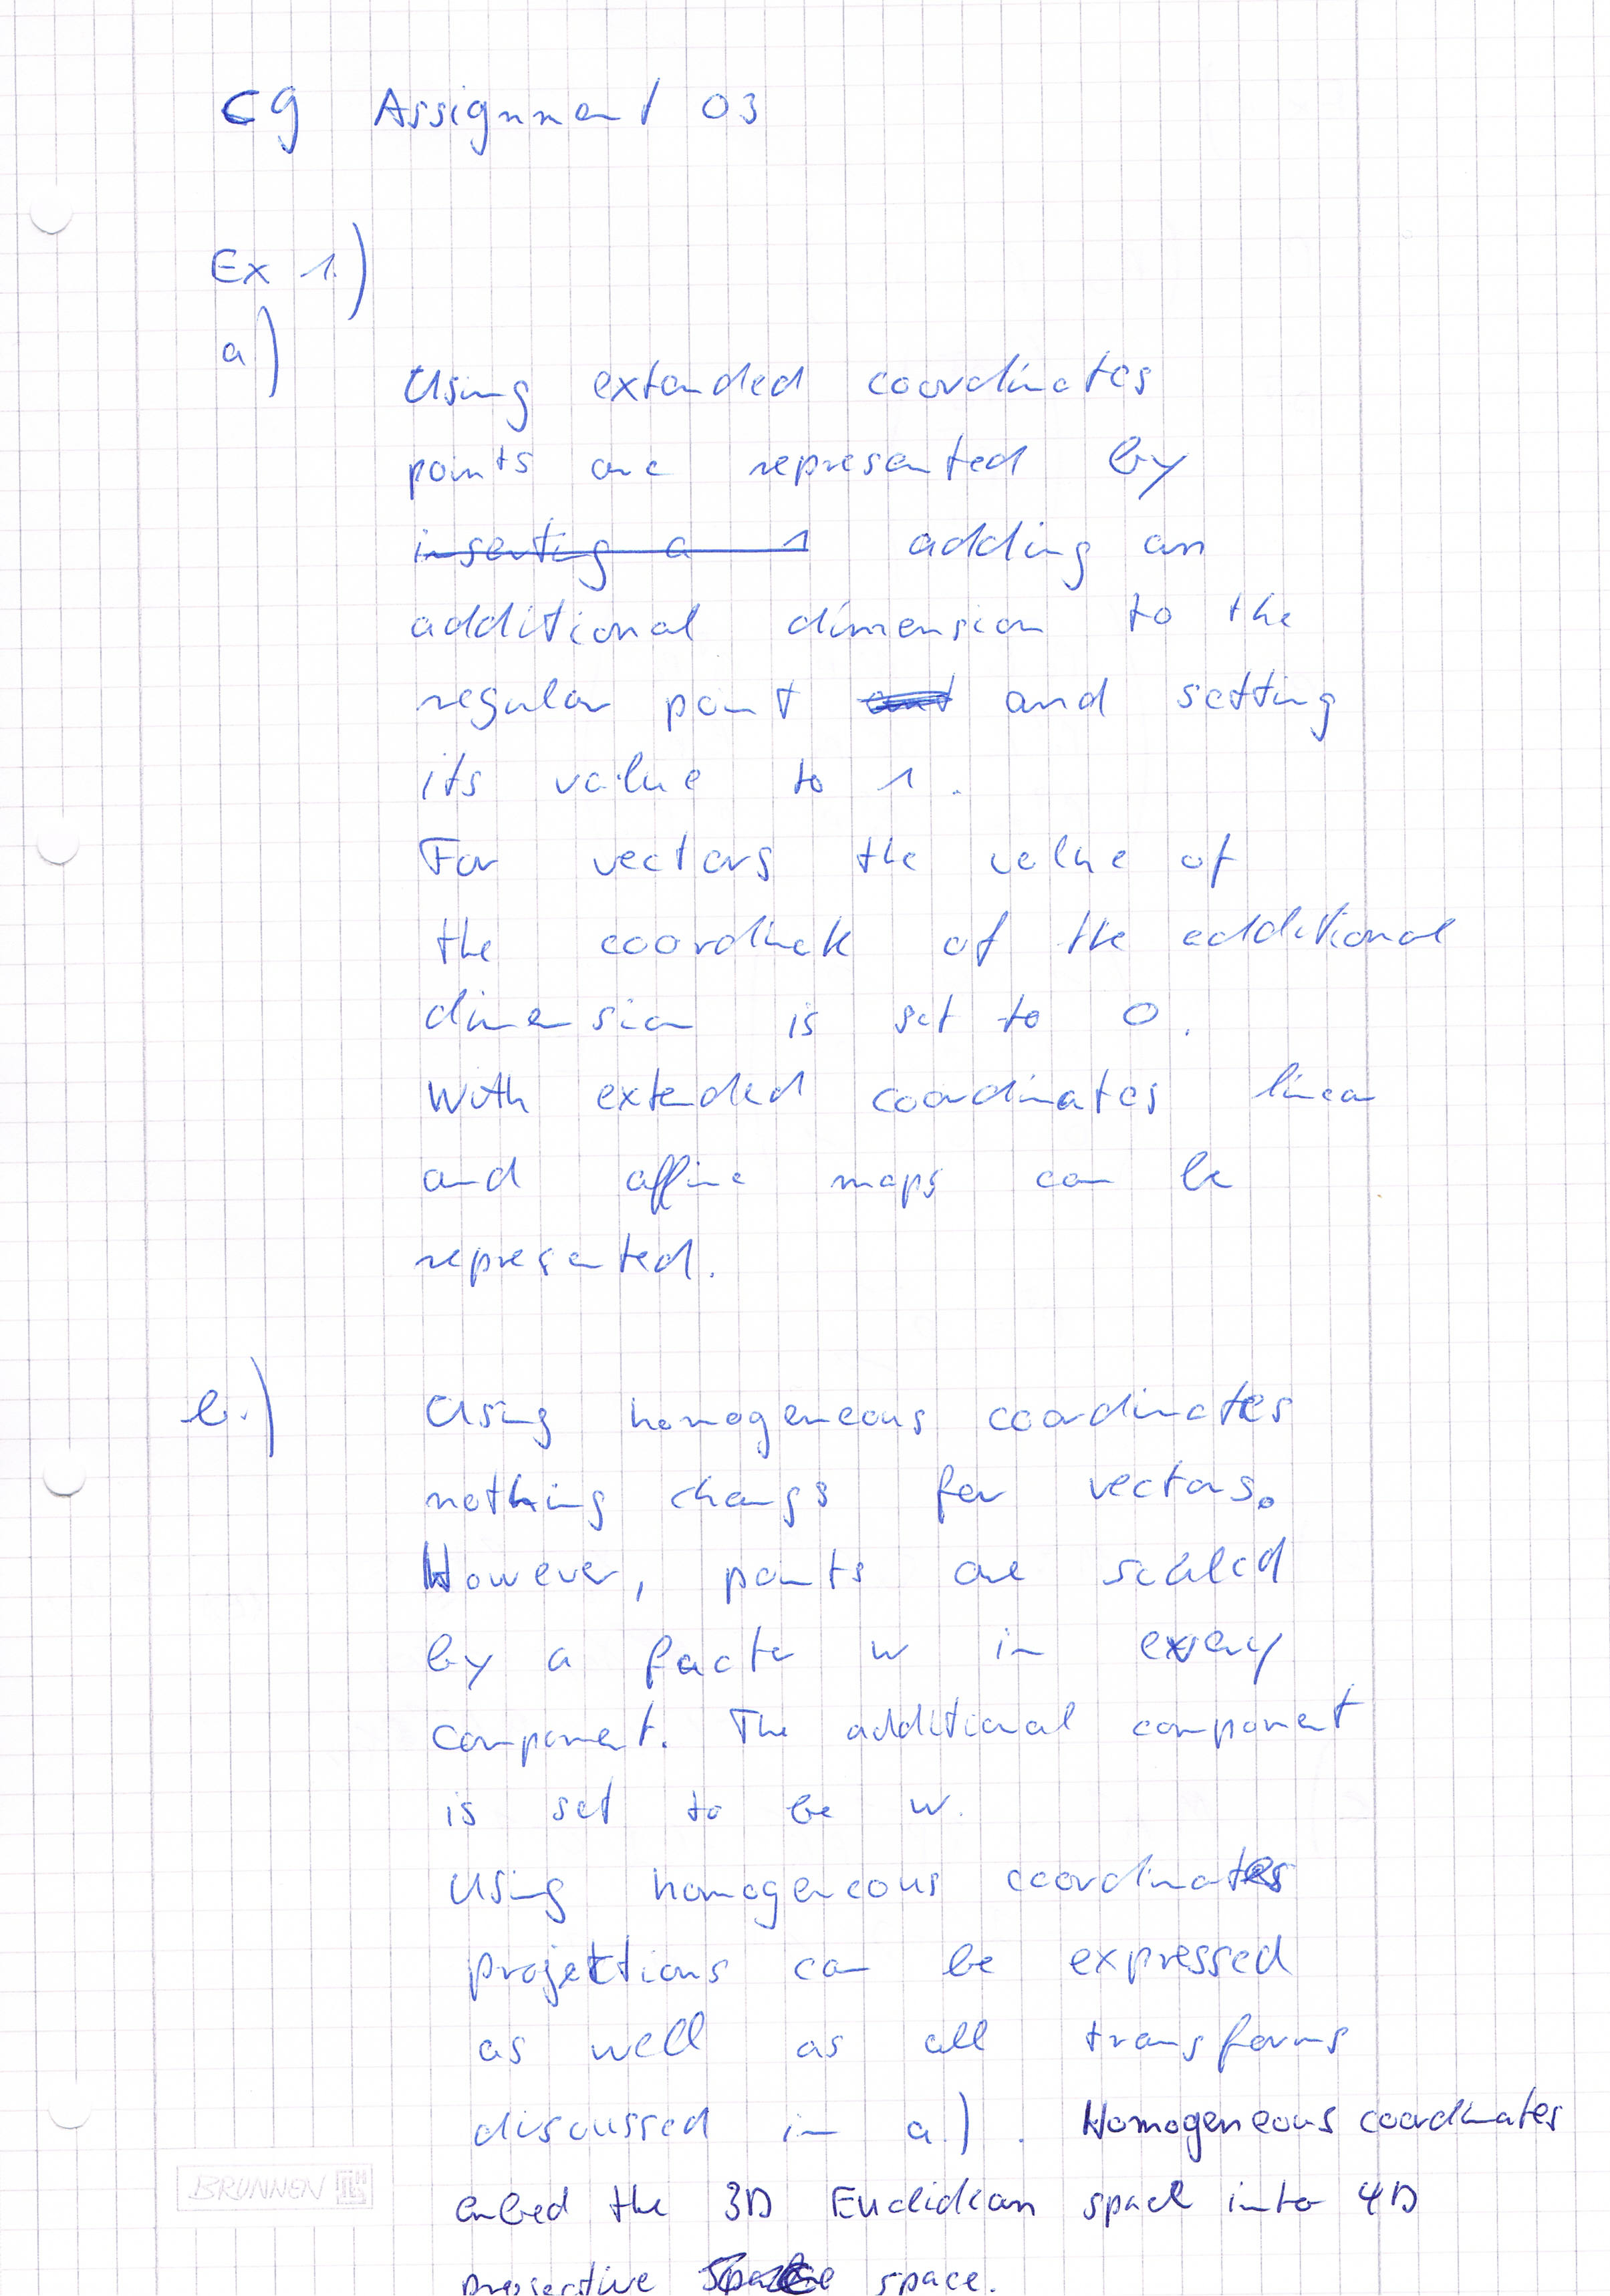 CG Assignment 03
Ex 1.)
a)
Using extended coordinates
points are represented by
inserting a 1 adding an
additional dimension to the
regular point and setting
its value to 1.
For vectors the value of
the coordinate of the additional
dimension is set to 0.
With extended coordinates linear
and affine maps can be
represented.
b.)
Using homogeneous coordinates
nothing changs for vectors.
However, points are scaled
by a factor w in every
component. The additional component
is set to be w.
Using homogeneous coordinates
projektions can be expressed
as well as all transforms
discussed in a.). Homogeneous coordinates
embed the 3D Euclidean space into 4D
BRUNNEN
projective space.